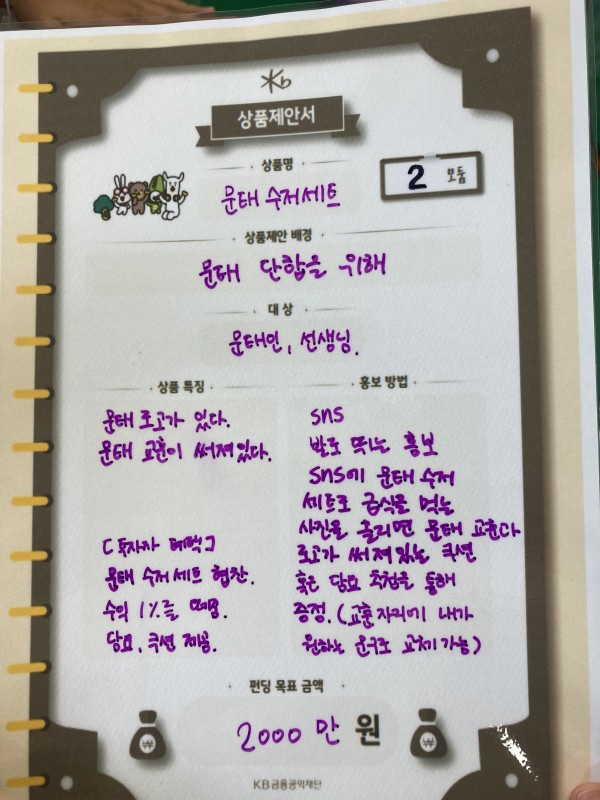 Kb
상품제안서
상품명
2 모둠
문태 수저세트
상품제안 배경
문태 단합을 위해
대상
문태인, 선생님.
상품 특징
문태 로고가 있다.
문태 교훈이 써져있다.
[투자자 혜택]
문태 수저세트 협찬.
수익 1%를 떼줌.
담요, 쿠션 제공.
홍보 방법
SNS
발로 뛰는 홍보
SNS에 문태 수저
세트로 급식을 먹는
사진을 올리면 문태 교훈과
로고가 써져있는 쿠션
혹은 담요 추첨을 통해
증정. (교훈 자리에 내가
원하는 문구로 교체 가능)
펀딩 목표 금액
2000 만 원
KB금융공익재단